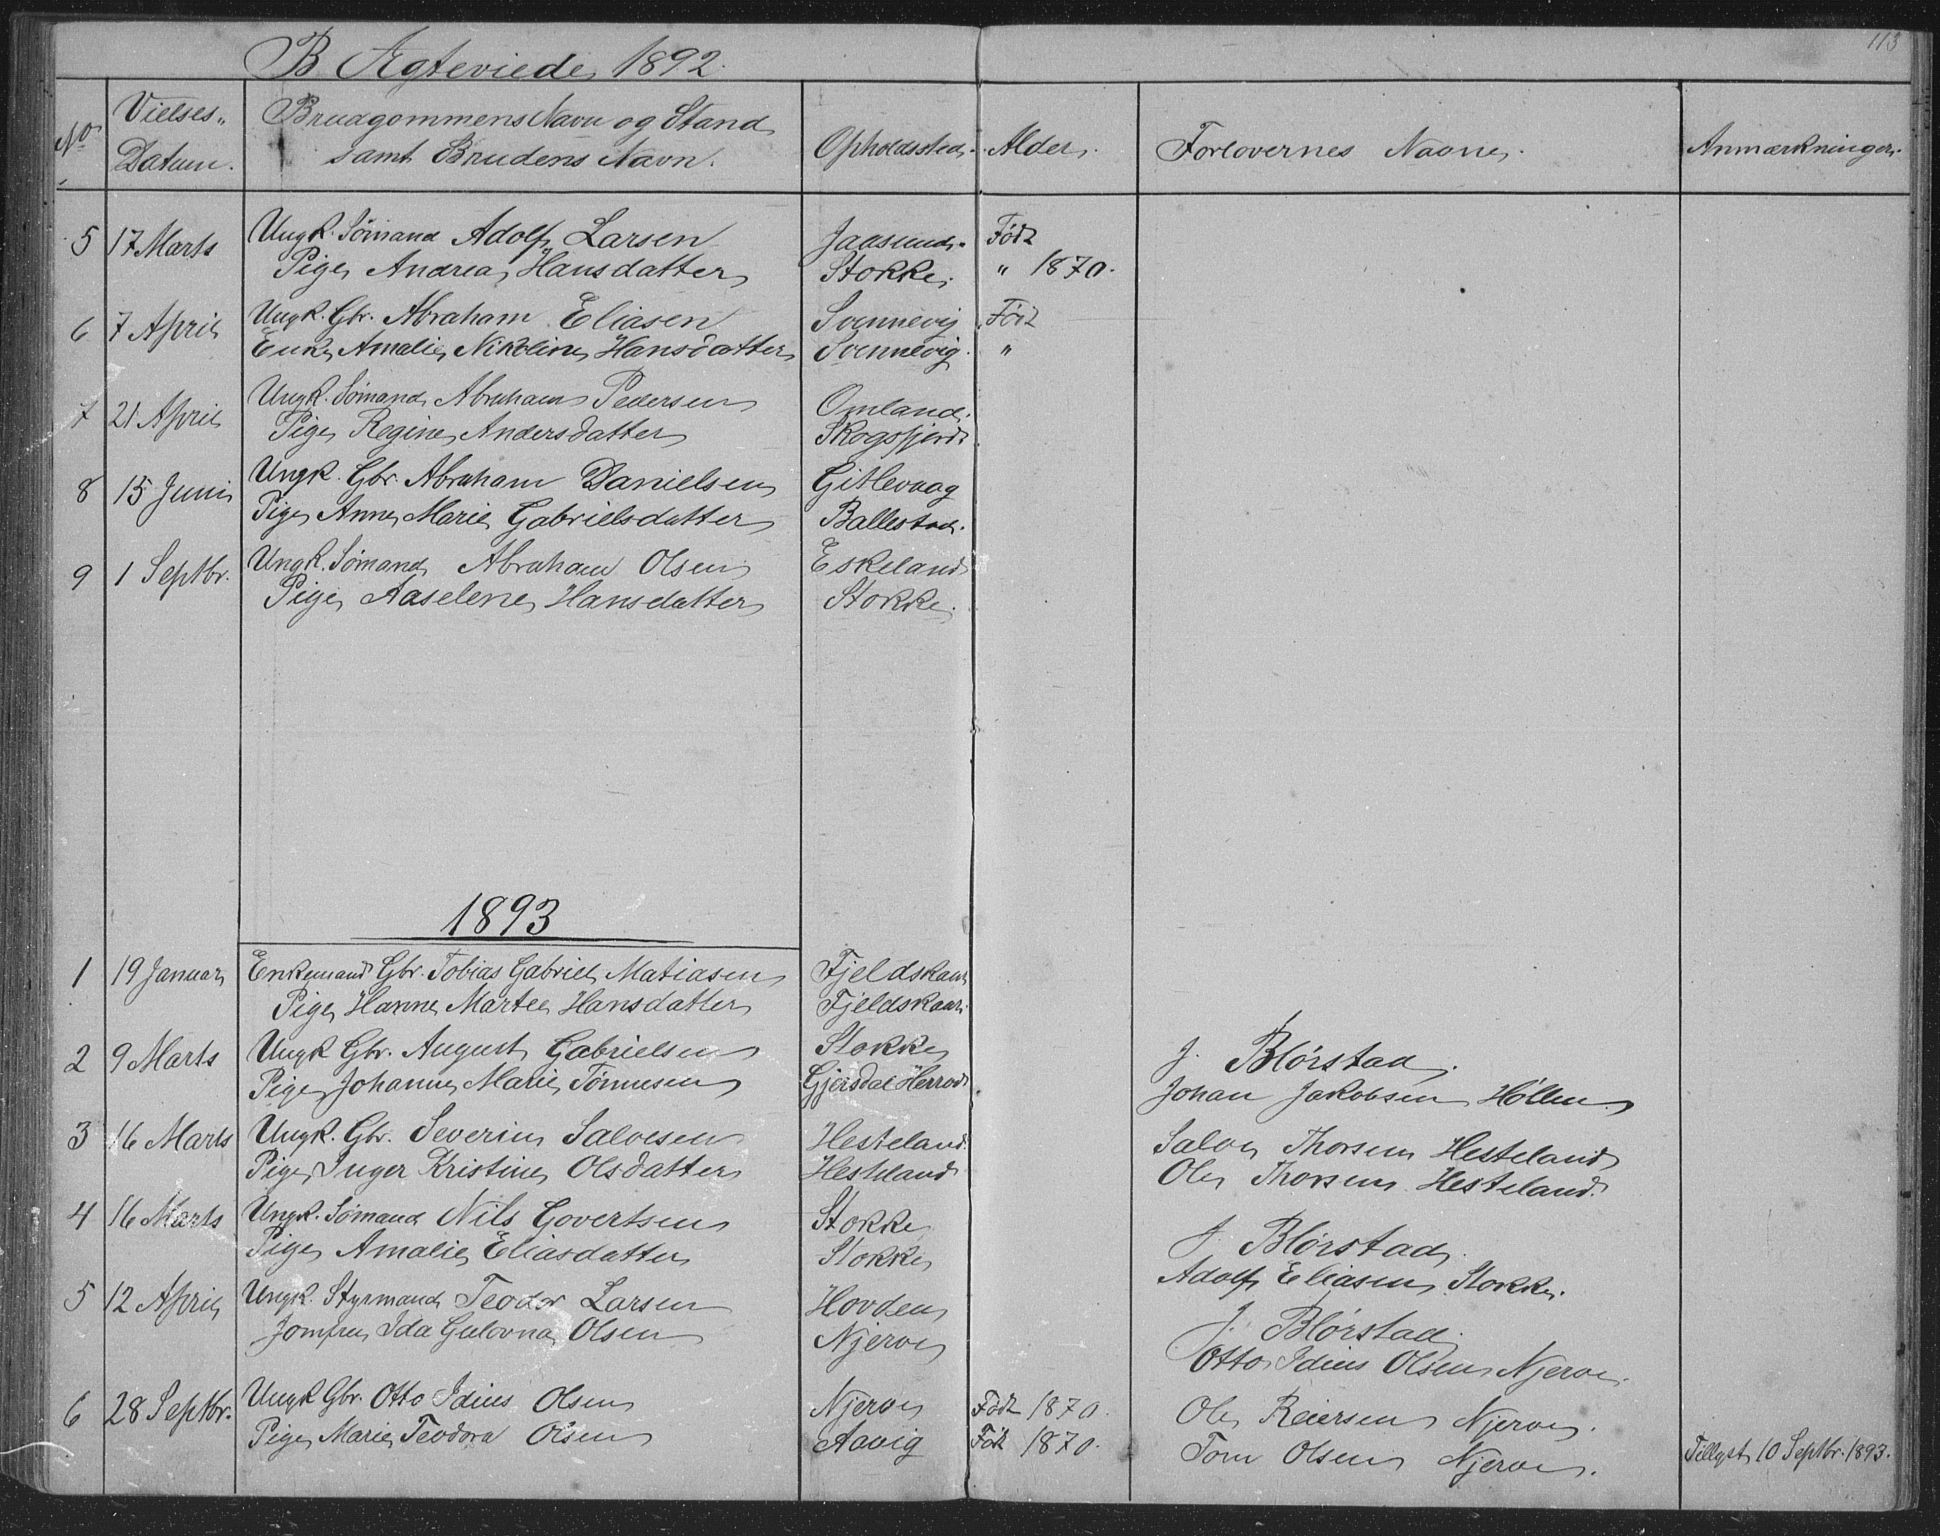 113
B Ægteviede 1892.
No
Vielses-
Datum.
Brudgommens Navn og Stand
samt Brudens Navn.
Opholdssted.
Alder.
Forlovernes Navne.
Anmærkninger.
5 17 Marts Ungk. Sømand Adolf Larsen Jaasund. Født
Pige Andrea Hansdatter Stokke. " 1870.
6 7 April Ungk. Gbr. Abraham Eliasen Svennevig Født
Enke Amalie Nikoline Hansdatter Svennevig. "
7 21 April Ungk. Sømand Abraham Pedersen Omland.
Pige Regine Andersdatter Skogsfjord.
8 15 Juni Ungk. Gbr. Abraham Danielsen Gitlevaag
Pige Anne Marie Gabrielsdatter Ballestad.
9 1 Septbr. Ungk. Sømand Abraham Olsen Eskeland
Pige Aaselene Hansdatter Stokke.
1893
1 19 Januar Enkemand Gbr. Tobias Gabriel Matiasen Fjeldskaar
Pige Hanne Martee Hansdatter Fjeldskaar.
2 9 Marts Ungk Gbr. August Gabrielsen Stokke J. Blørstad.
Pige Johanne Marie Tønnesen Gjersdal Herrod Johan Jakobsen Høllen
3 16 Marts Ungk. Gbr. Severin Salvesen Hesteland. Salve Thorsen Hesteland
Pige Inger Kristine Olsdatter Hesteland Ole Thorsen Hesteland.
4 16 Marts Ungk. Sømand Nils Govertsen Stokke J. Blørstad.
Pige Amalie Eliasdatter Stokke Adolf Eliasen Stokke.
5 12 April Ungk. Styrmand Teodor Larsen Hovden J. Blørstad.
Jomfru Ida Gulovna Olsen Njerve Otto Idius Olsen Njerve.
6 28 Septbr. Ungk Gbr. Otto Idius Olsen Njerve Født 1870. Ole Reiersen Njerve.
Pige Marie Teodora Olsen Aavig Født 1870. Tom Olsen Njerve. Tillyst 10 Septbr. 1893.